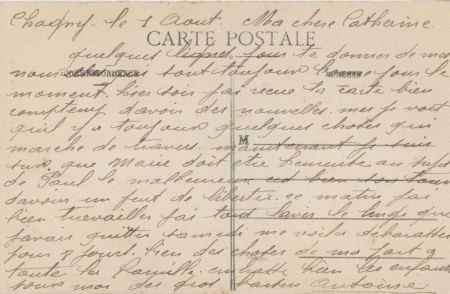 Chagny le 1 Aout. Ma chere Catherine.
CARTE POSTALE
quelques lignes pour te donner de nos
CORRESPONDANCE
ADRESSE
nous sont toujours pour le
moment. hier soir jai recue ta carte bien
contente davoir des nouvelles. mes je voit
quil y a toujours quelques choses qui
M
marche de travers. maintenant je suis
sur que Marie doit etre heureuse au sujet
de Paul le malheureux est bien
davoir un peut de libertee. ce matin jai
bien travaillee jai tout laver le linge que
javais quitter samedi me voila debarassee
pour 8 jours. bien des choses de ma part a
toute la famille. embrasse bien les enfants
pour moi des gros baisers Antoinise